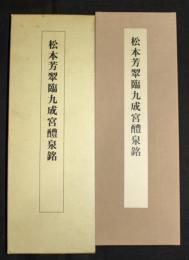 松本芳翠臨九成宮醴泉銘
松本芳翠臨九成宮醴泉銘